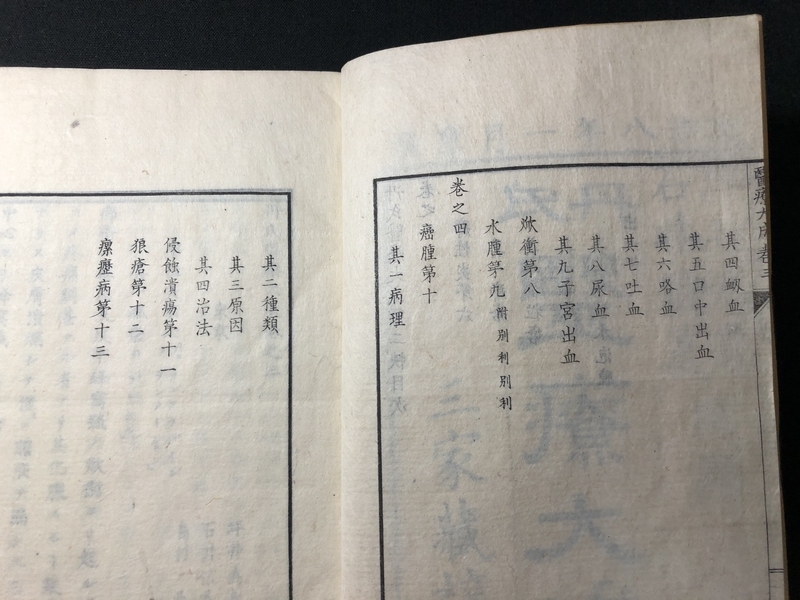 醫療大成 卷三
其四衄血
其五口中出血
其六咯血
其七吐血
其八尿血
其九子宮出血
焮衝第八
水腫第九
卷之四
癌腫第十
其一病理
其二種類
其三原因
其四治法
侵蝕潰瘍第十一
狼瘡第十二
瘰癧病第十三